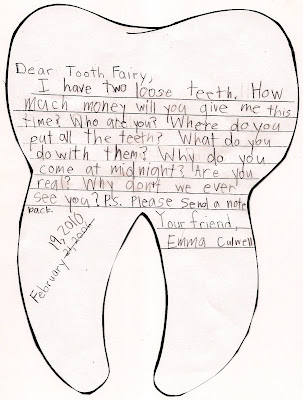 Dear Tooth Fairy,
I have two loose teeth. How
much money will you give me this
time? Who are you? Where do you
put all the teeth? What do you
do with them? Why do you
come at midnight? Are you
real? Why don't we ever
see you? P.S. Please send a note
back
Your friend,
Emma Culwell
February 19, 2010